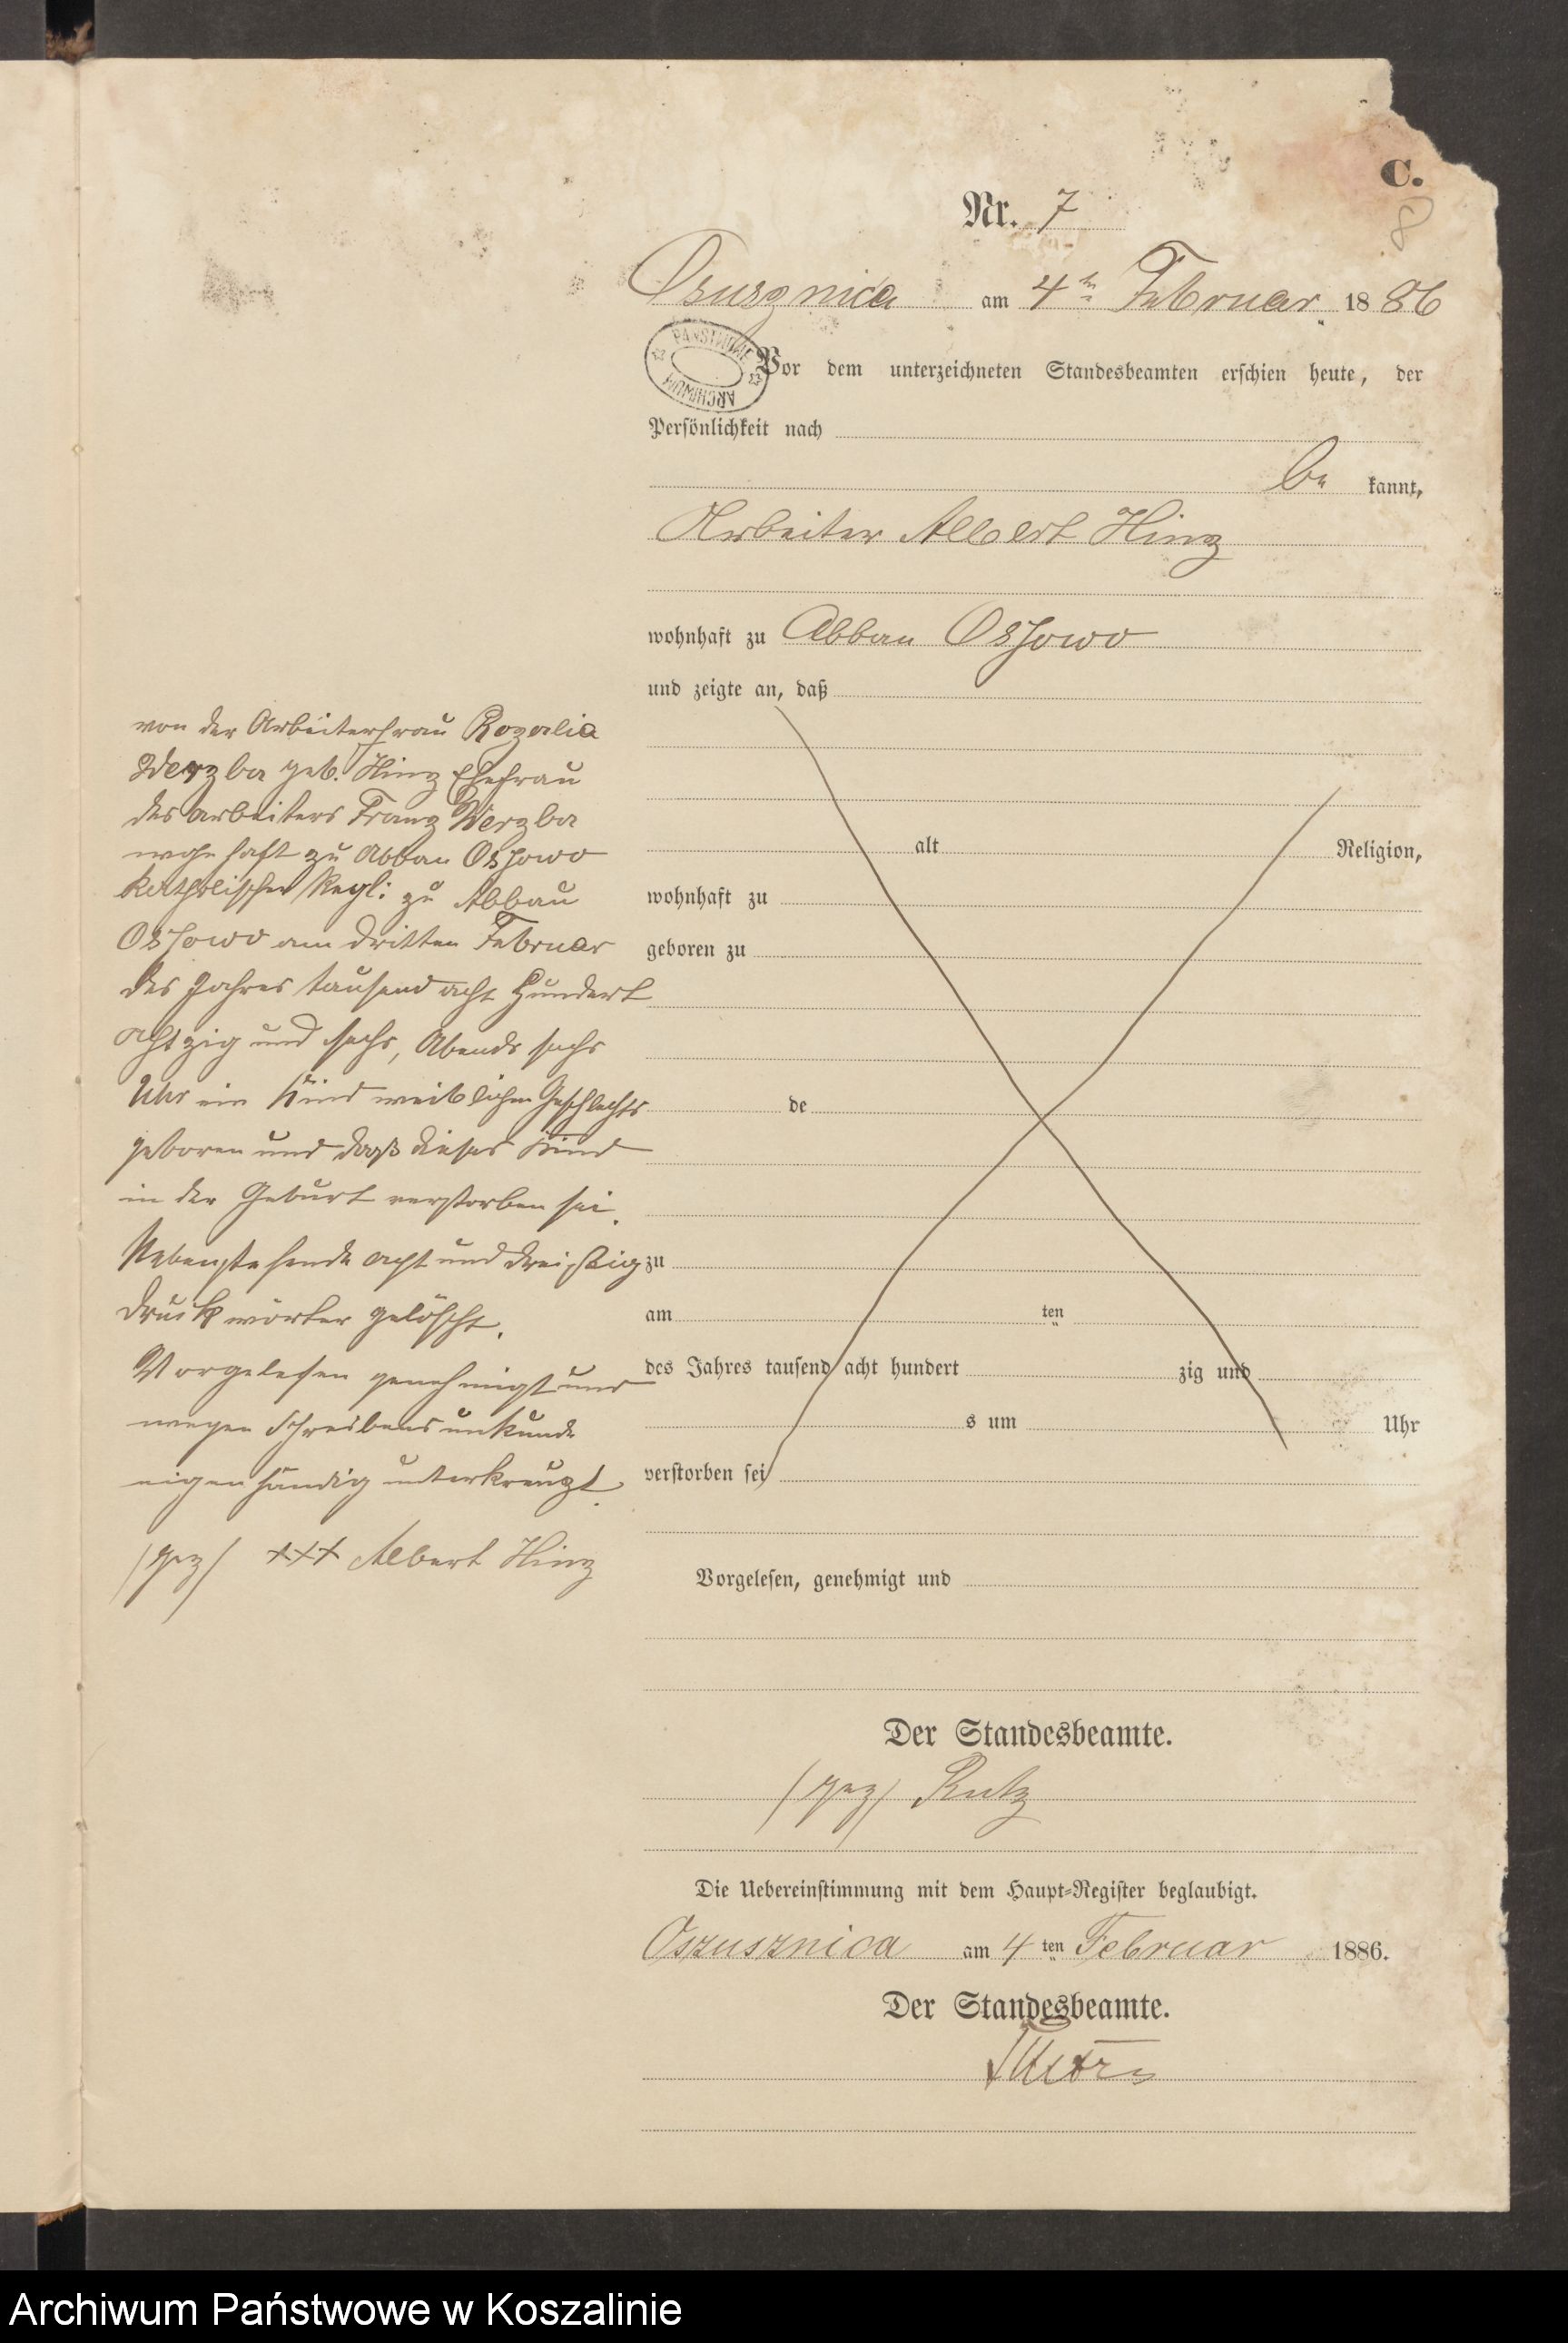 C.
8
Nr. 7
Osusznica am 4ten Februar 1886
PAŃSTWOWE ARCHIWUM
Vor dem unterzeichneten Standesbeamten erschien heute, der
Persönlichkeit nach
be kannt,
Arbeiter Albert Hinz
wohnhaft zu Abbau Ossowo
und zeigte an, daß
alt Religion,
wohnhaft zu
geboren zu
de
zu
am ten
des Jahres tausend acht hundert zig und
s um Uhr
verstorben sei
Vorgelesen, genehmigt und
von der Arbeiterfrau Rozalia
Werzba geb. Hinz Ehefrau
des Arbeiters Franz Werzba
wohnhaft zu Abbau Ossowo
katholischer Regl: zu Abbau
Ossowo am dritten Februar
des Jahres tausend acht hundert
achtzig und sechs, Abends sechs
Uhr ein Kind weiblichen Geschlechts
geboren und daß dieses Kind
in der Geburt verstorben sei.
Nebenstehende acht und dreißig
Druckwörter gelöscht.
Vorgelesen genehmigt und
wegen Schreibensunkunde
eigenhändig unterkreuzt.
/gez/ +++ Albert Hinz
Der Standesbeamte.
/gez/ Rutz
Die Uebereinstimmung mit dem Haupt-Register beglaubigt.
Oszusznica am 4 ten Februar 1886.
Der Standesbeamte.
Archiwum Państwowe w Koszalinie